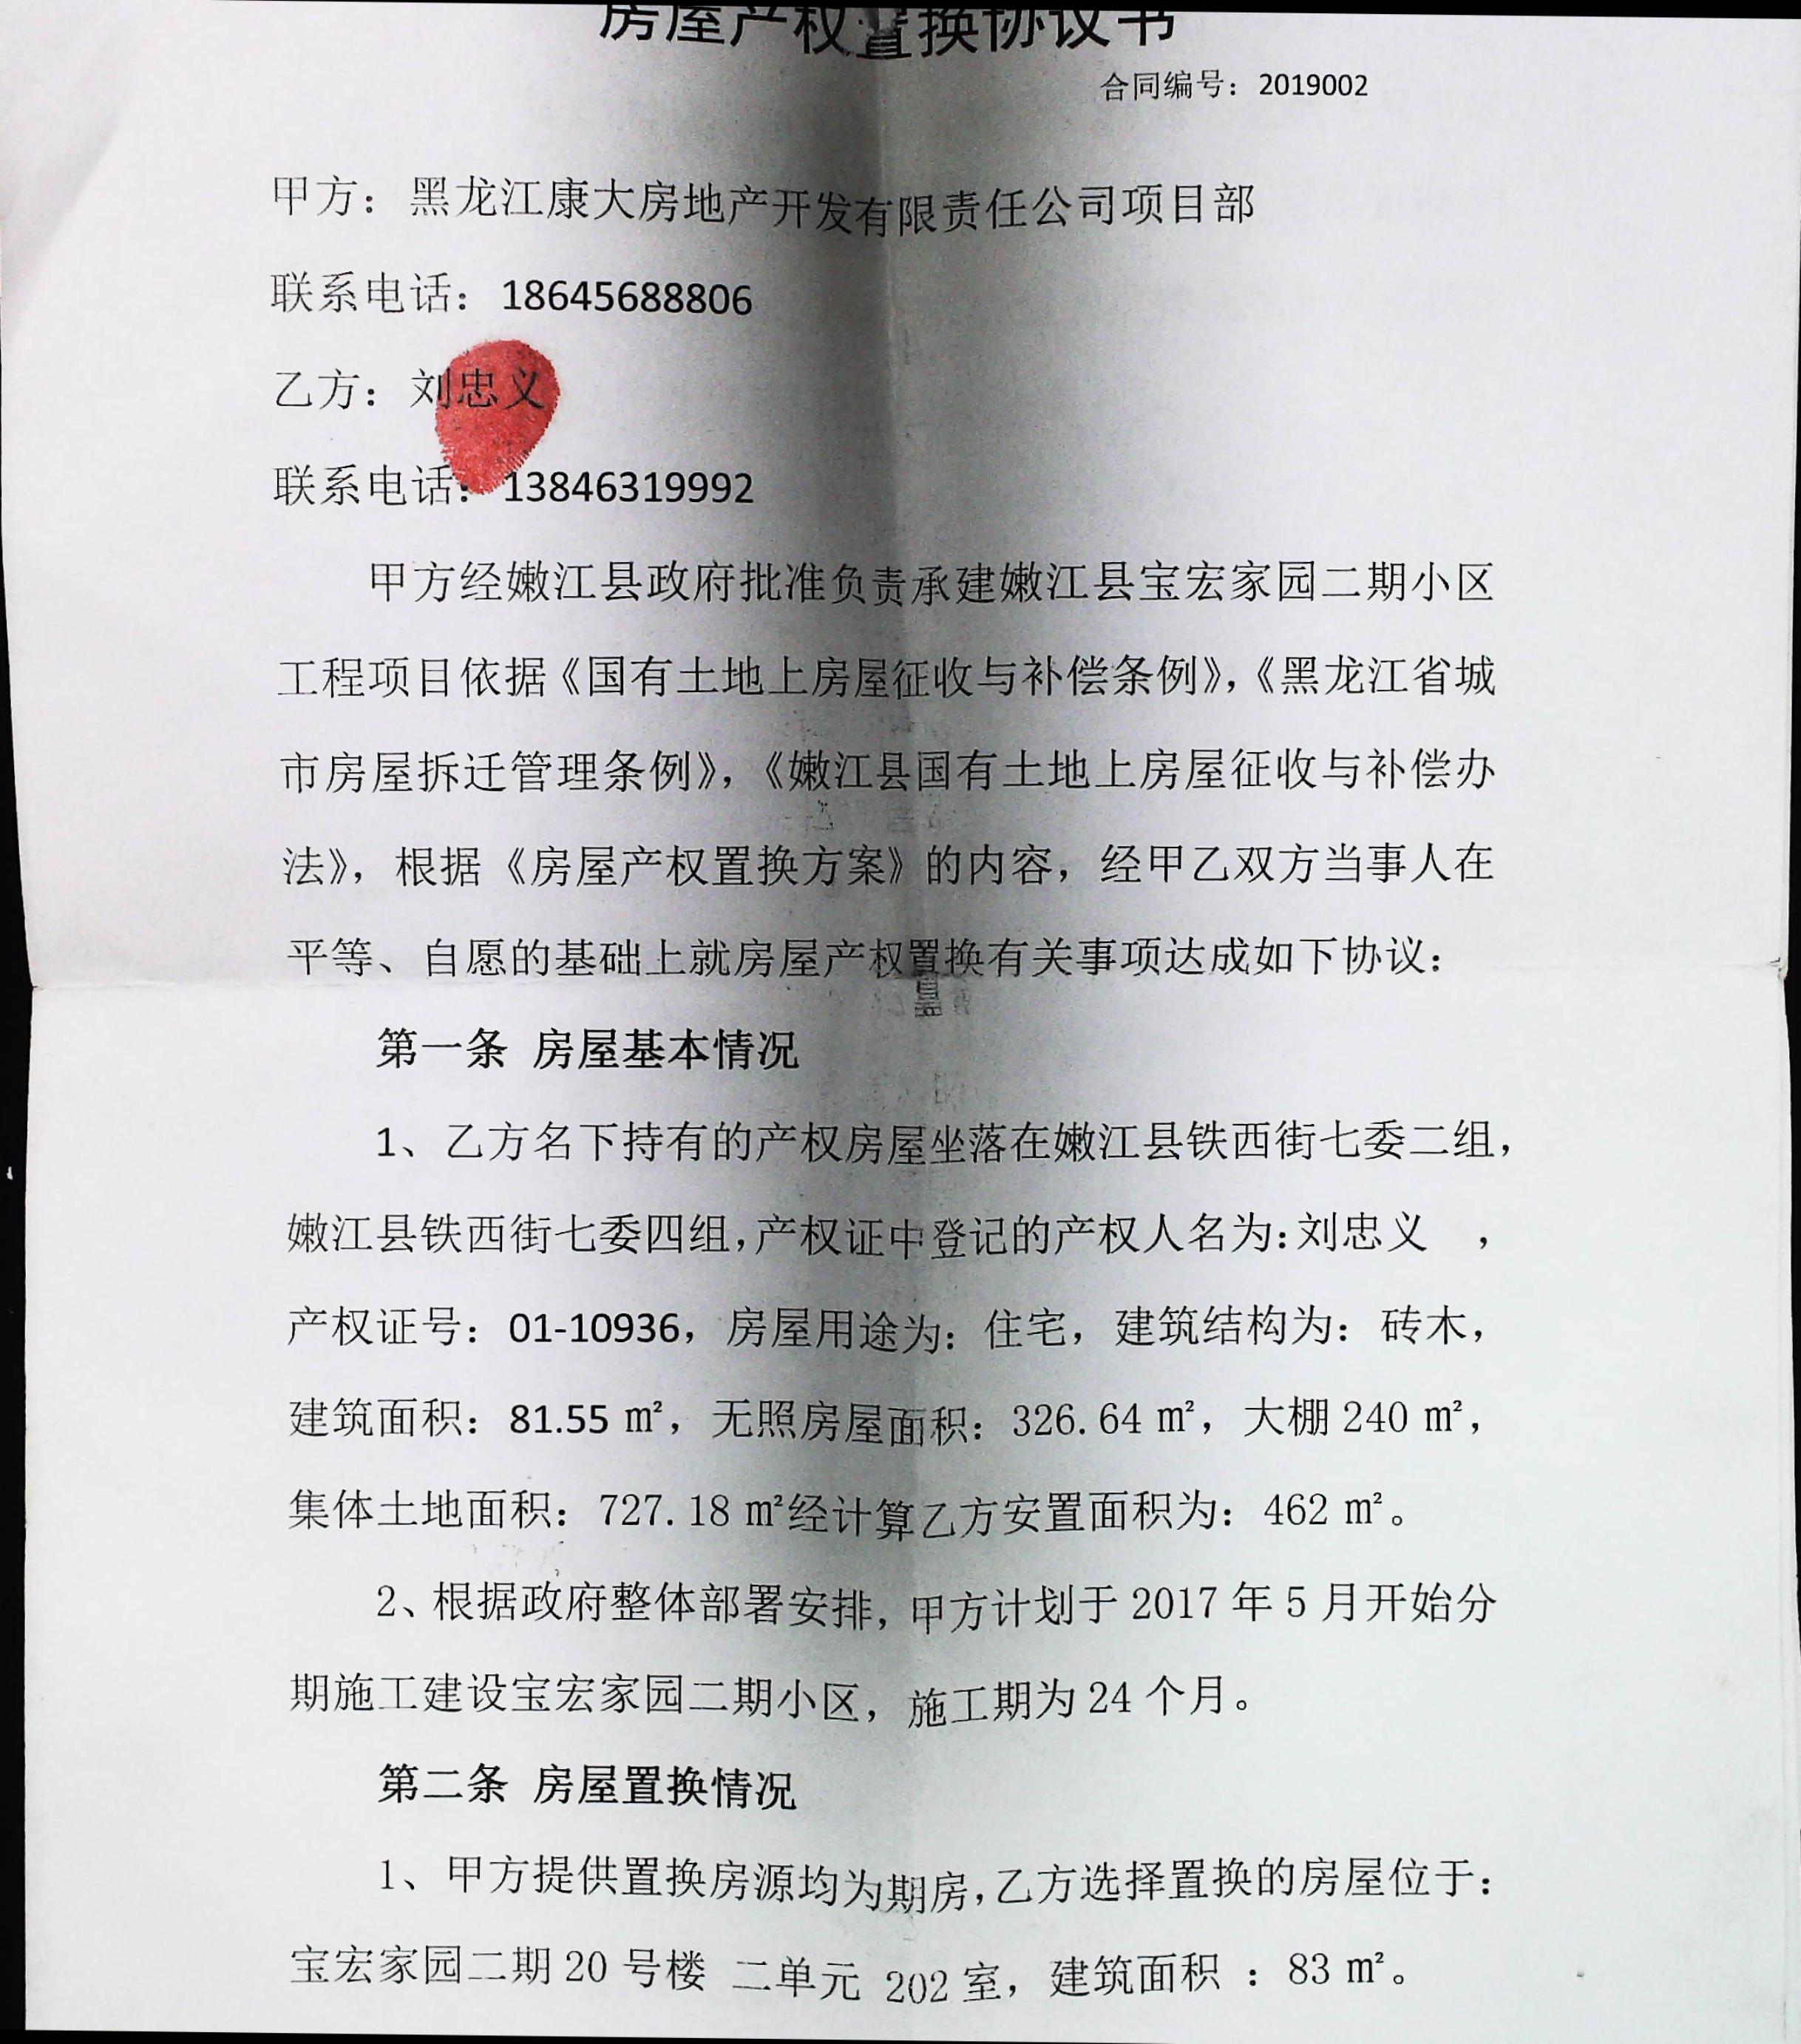 房屋产权置换协议书
合同编号：2019002
甲方：黑龙江康大房地产开发有限责任公司项目部
联系电话：18645688806
乙方：刘忠义
联系电话：13846319992
甲方经嫩江县政府批准负责承建嫩江县宝宏家园二期小区
工程项目依据《国有土地上房屋征收与补偿条例》，《黑龙江省城
市房屋拆迁管理条例》，《嫩江县国有土地上房屋征收与补偿办
法》，根据《房屋产权置换方案》的内容，经甲乙双方当事人在
平等、自愿的基础上就房屋产权置换有关事项达成如下协议：
第一条 房屋基本情况
1、乙方名下持有的产权房屋坐落在嫩江县铁西街七委二组，
嫩江县铁西街七委四组，产权证中登记的产权人名为：刘忠义 ，
产权证号：01-10936，房屋用途为：住宅，建筑结构为：砖木，
建筑面积：81.55 ㎡，无照房屋面积：326.64 ㎡，大棚 240 ㎡，
集体土地面积：727.18 ㎡经计算乙方安置面积为：462 ㎡。
2、根据政府整体部署安排，甲方计划于 2017 年 5 月开始分
期施工建设宝宏家园二期小区，施工期为 24 个月。
第二条 房屋置换情况
1、甲方提供置换房源均为期房，乙方选择置换的房屋位于：
宝宏家园二期 20 号楼 二单元 202 室，建筑面积 ：83 ㎡。